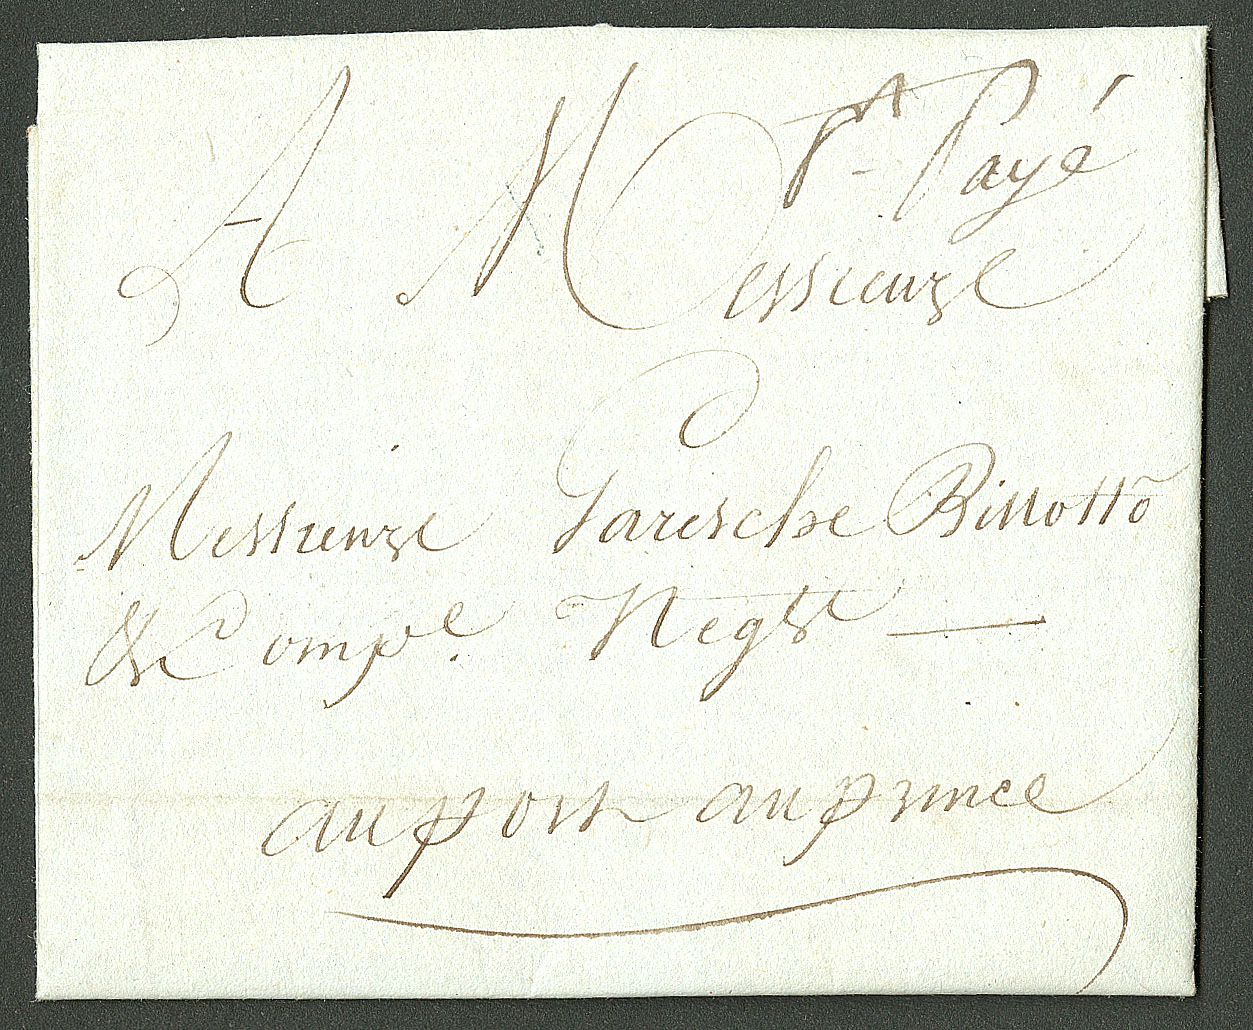 Pt Payé
A Messieurs
Messieurs Garesche Billotto
& Compe. Negts
au port au prince